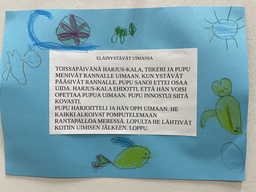 ELÄINYSTÄVÄT UIMASSA
TOISSAPÄIVÄNÄ HARJUS-KALA, TIIKERI JA PUPU
MENIVÄT RANNALLE UIMAAN. KUN YSTÄVÄT
PÄÄSIVÄT RANNALLE, PUPU SANOI ETTEI OSAA
UIDA. HARJUS-KALA EHDOTTI, ETTÄ HÄN VOISI
OPETTAA PUPUA UIMAAN. PUPU INNOSTUI SIITÄ
KOVASTI.
PUPU HARJOITTELI JA HÄN OPPI UIMAAN. HE
KAIKKI ALKOIVAT POMPUTELEMAAN
RANTAPALLOA MERESSÄ. LOPULTA HE LÄHTIVÄT
KOTIIN UIMISEN JÄLKEEN. LOPPU.